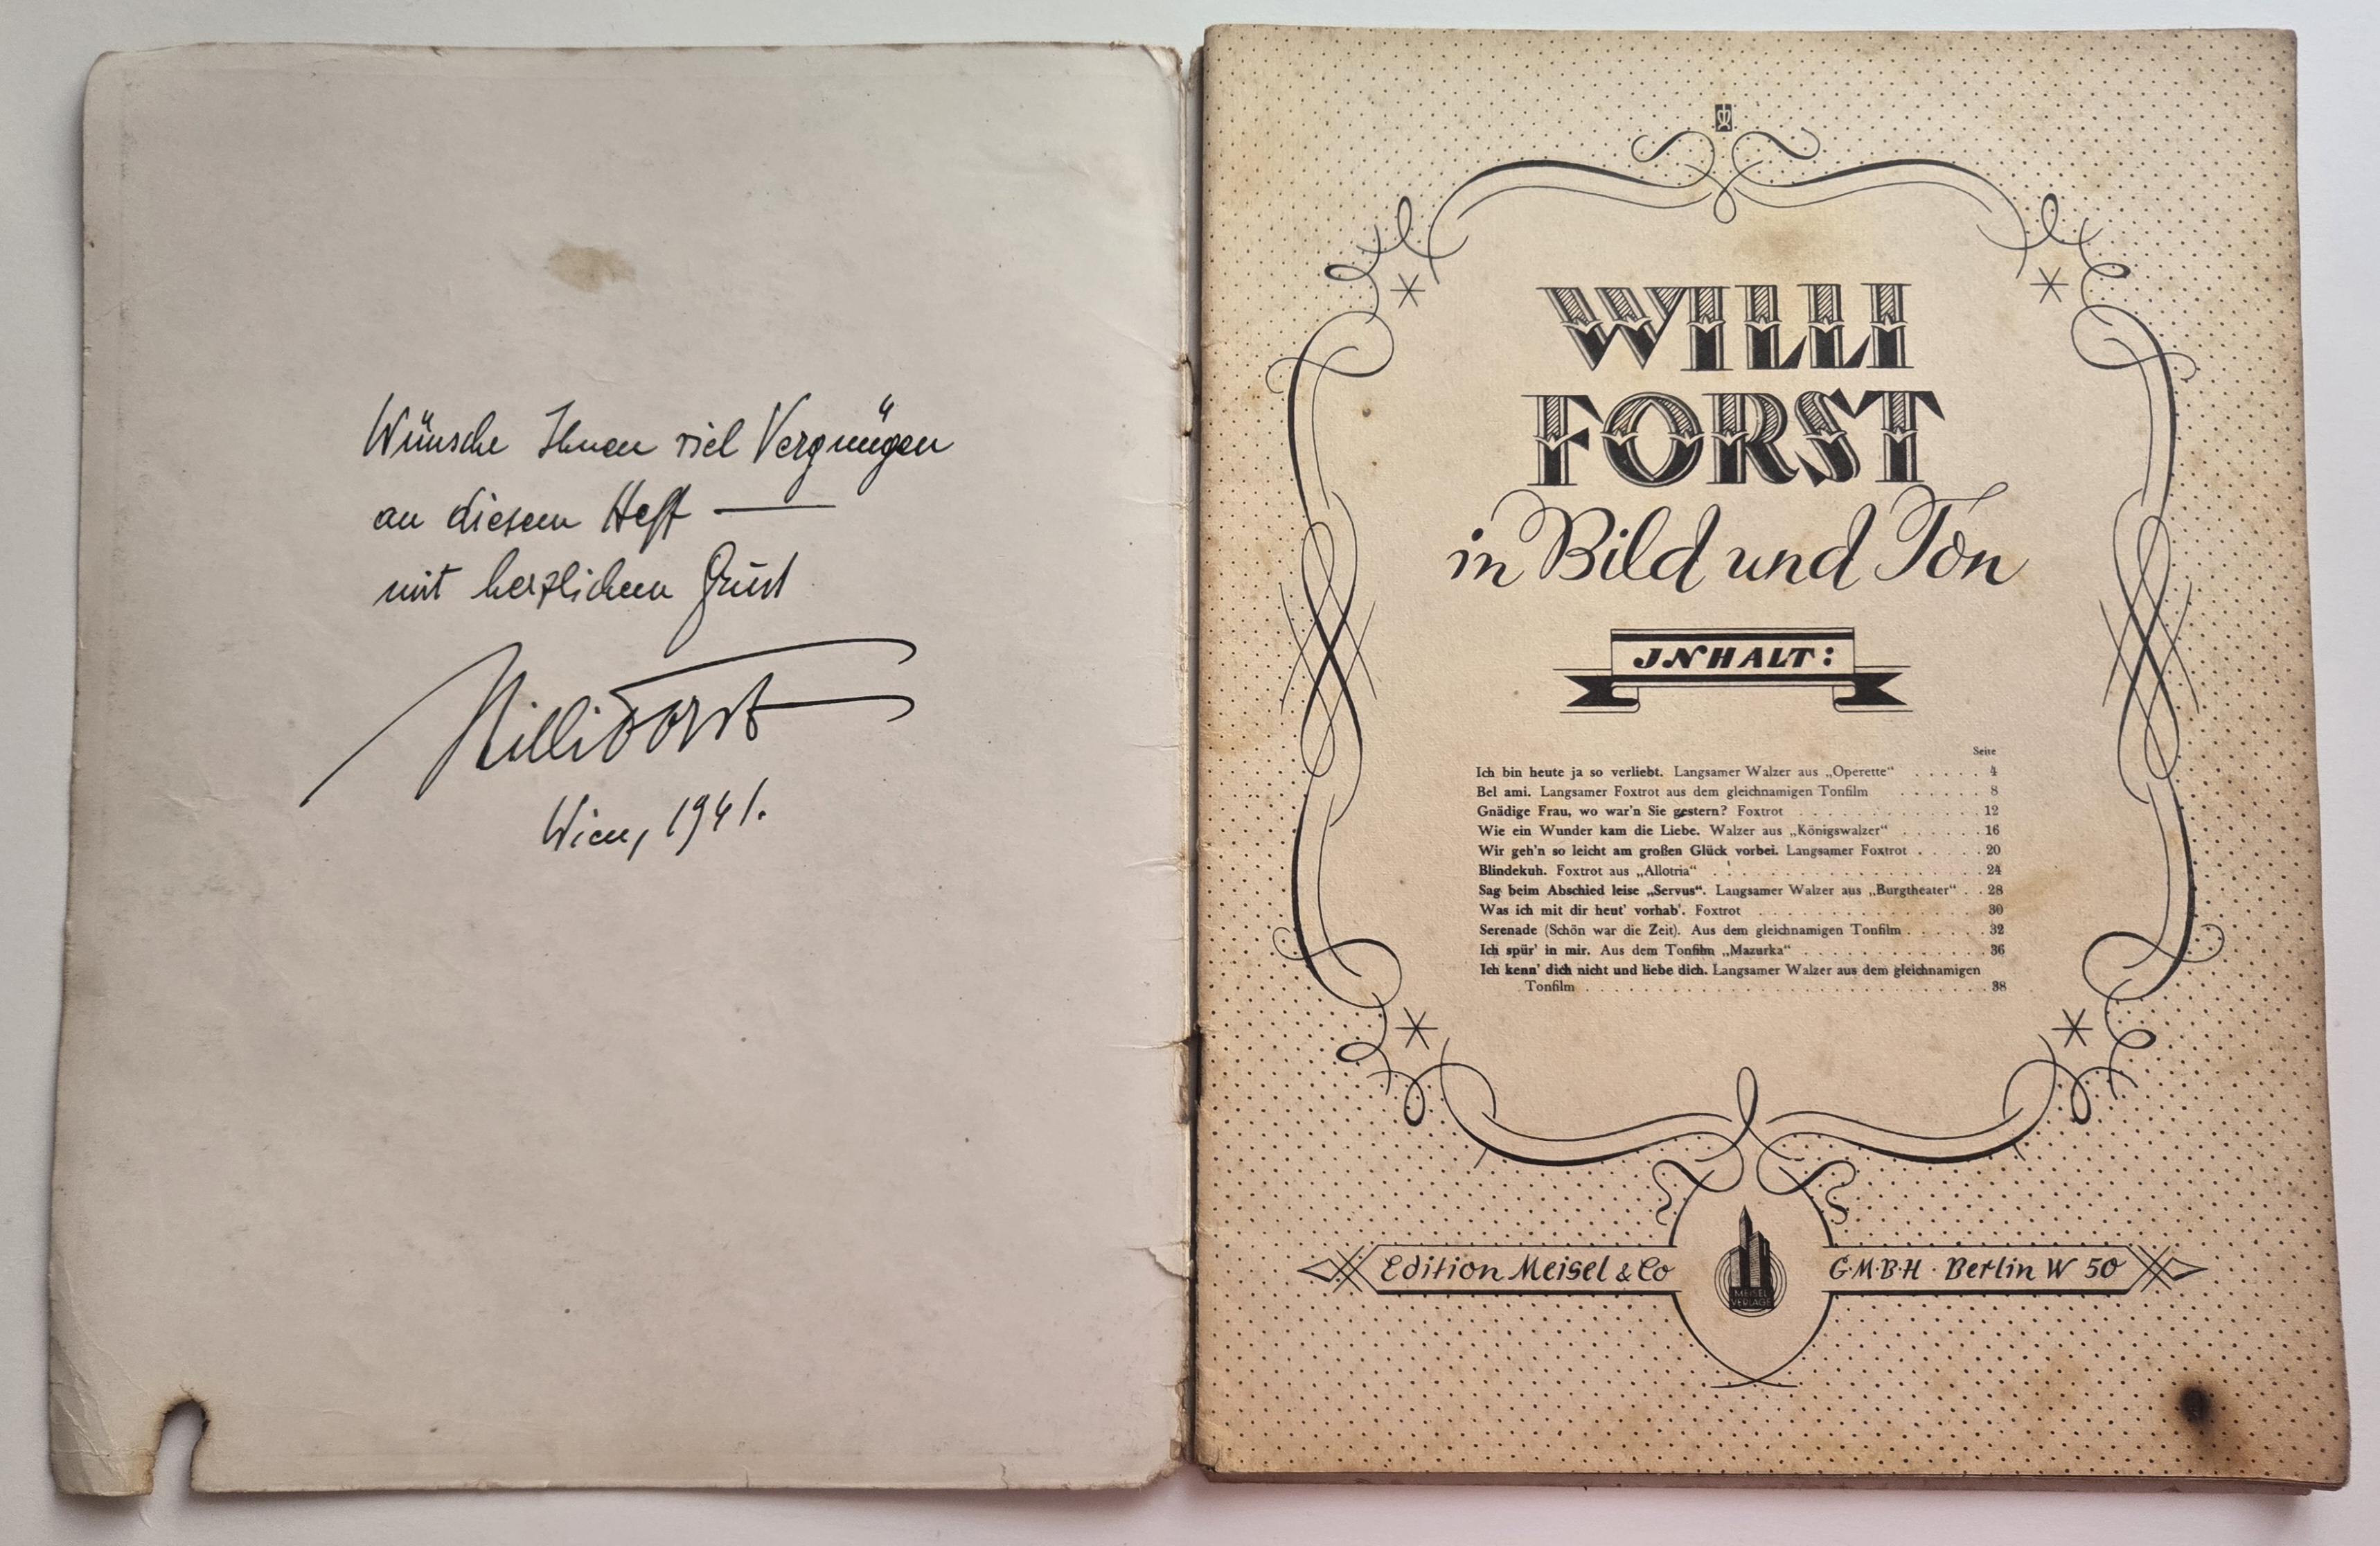 Wünsche Ihnen viel Vergnügen
an diesem Heft —
mit herzlichem Gruß
Willi Forst
Wien, 1941.
WILLI
FORST
in Bild und Ton
JNHALT:
Seite
Ich bin heute ja so verliebt. Langsamer Walzer aus „Operette“ . . . . . 4
Bel ami. Langsamer Foxtrot aus dem gleichnamigen Tonfilm . . . . . . 8
Gnädige Frau, wo war'n Sie gestern? Foxtrot . . . . . . . . . . . . . 12
Wie ein Wunder kam die Liebe. Walzer aus „Königswalzer“ . . . . . . 16
Wir geh'n so leicht am großen Glück vorbei. Langsamer Foxtrot . . . . 20
Blindekuh. Foxtrot aus „Allotria“ . . . . . . . . . . . . . . . . . 24
Sag beim Abschied leise „Servus“. Langsamer Walzer aus „Burgtheater“ . . 28
Was ich mit dir heut' vorhab'. Foxtrot . . . . . . . . . . . . . . . 30
Serenade (Schön war die Zeit). Aus dem gleichnamigen Tonfilm . . . . . 32
Ich spür' in mir. Aus dem Tonfilm „Mazurka“ . . . . . . . . . . . . 36
Ich kenn' dich nicht und liebe dich. Langsamer Walzer aus dem gleichnamigen
Tonfilm . . . . . . . . . . . . . . . . . . . . . . . . . . . . . . 38
Edition Meisel & Co G·M·B·H · Berlin W 50
MEISEL
VERLAGE